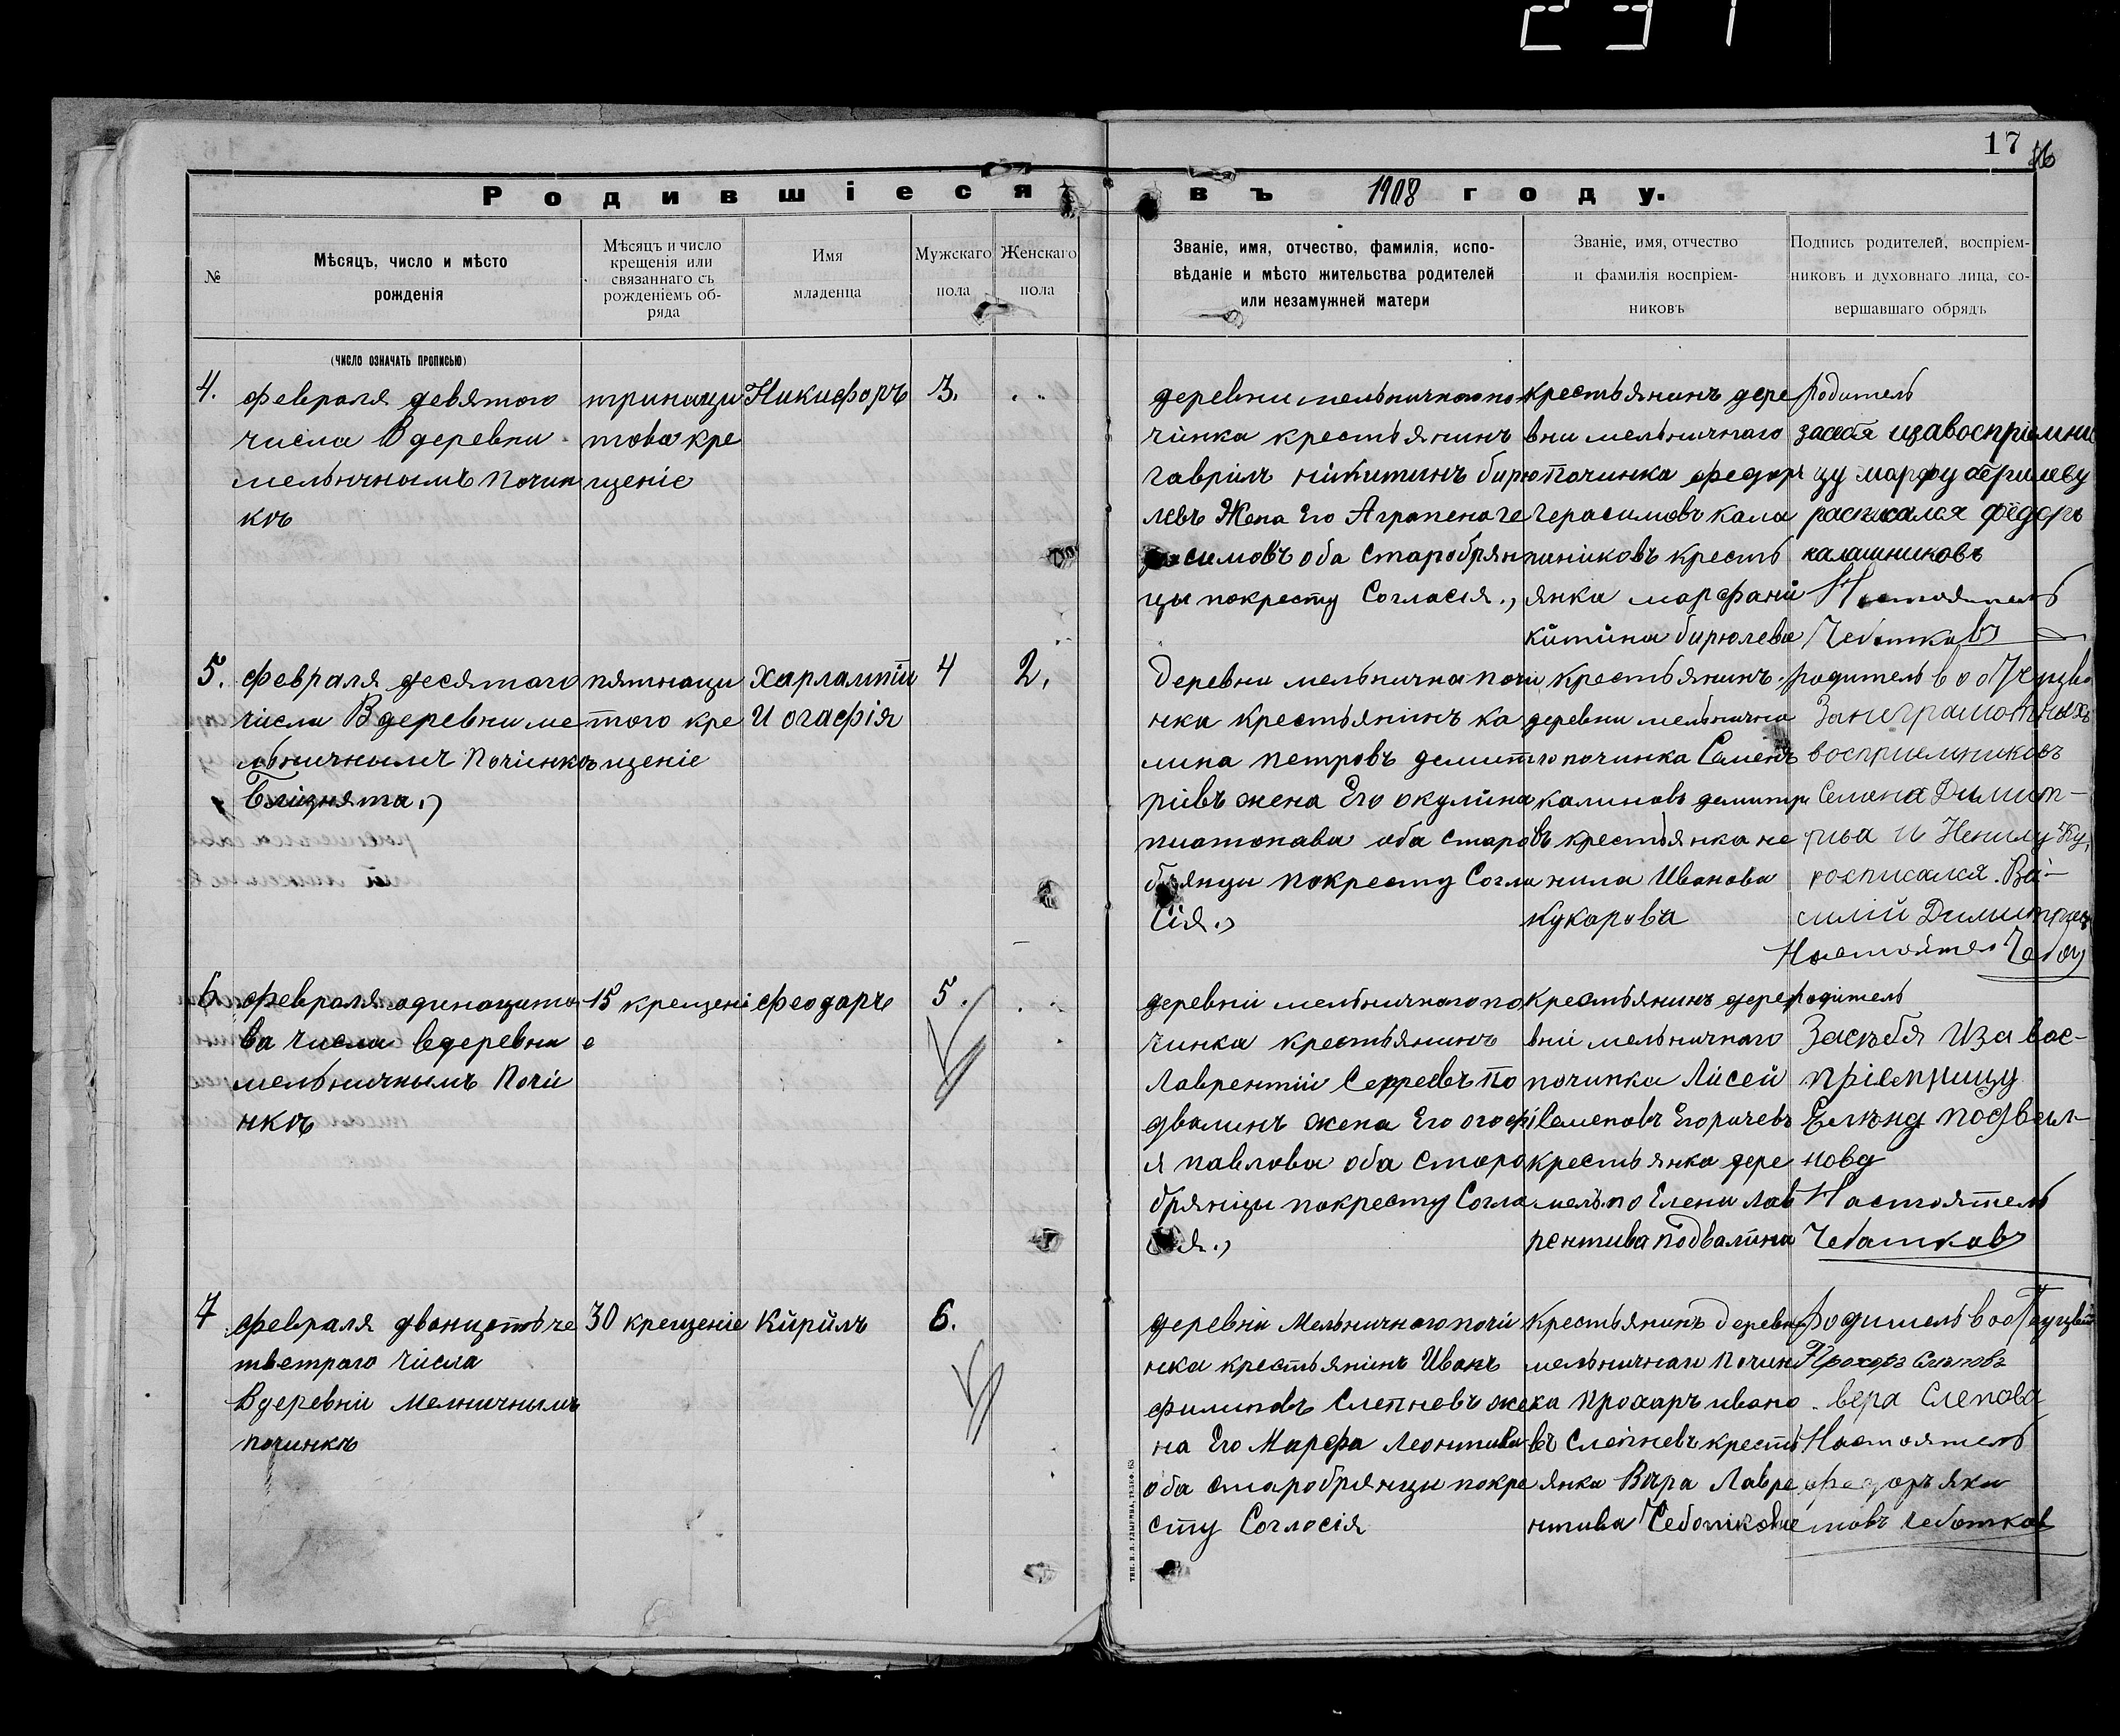 231
17
16
Родившіеся въ 1908 году.
№
Мѣсяцъ, число и мѣсто
рожденія
Мѣсяцъ и число
крещенія или
связаннаго съ
рожденіемъ об-
ряда
Имя
младенца
Мужскаго
пола
Женскаго
пола
Званіе, имя, отчество, фамилія, испо-
вѣданіе и мѣсто жительства родителей
или незамужней матери
Званіе, имя, отчество
и фамилія воспріем-
никовъ
Подпись родителей, воспріем-
никовъ и духовнаго лица, со-
вершавшаго обрядъ
(число означать прописью)
4.
февраля девятого
числа В деревни
мельничнымъ Почин
кѣ
тринаци
това кре
щеніе
Никифоръ
3.
деревни мельничного по
чинка крестьянинъ
гаврілъ нікитинъ бирю
левъ Жена Его Аграпена ге
расимовъ оба старобрян
цы покресту Согласія.,
крестьянинъ дере
вни мельничнаго
починка федоръ
герасимовъ кала
шниковъ кресть
янка марфа ни
китина бирюлева
родитель
засебя изавоспріемни
цу марфу
расписался федоръ
калашниковъ
Настоятель
Чебатковъ
5.
февраля десятаго
числа В деревни ме
льничнымъ Почінкѣ
близнята.,
пятнаци
того кре
щеніе
Харлампій
И огафія
4
2.
деревни мельнична почи
нка крестьянінъ ка
лина петровъ демит
ріевъ жена Его окулина
платонава оба старо
брянцы покресту Согла
сія.,
крестьянинъ
деревни мельнична
го починка Семенъ
калиновъ демитри
въ крестьянка не
нила Иванова
Кукарова
родитель
За неграмотныхъ
восприемниковъ
Семена Димит-
рива и Ненилу Ку,
росписался. Ва-
силій
Настоятел Чебат
6
февраля одинацито
ва числа вдеревни
мельничнымъ Почи
нкѣ
15 крещені
е
феодаръ
5.
деревні мельничного по
чинка крестьянинъ
Лаврентій Сергеевъ По
двалинъ жена Его огофі
я павлова оба старо
брянцы покресту Согла
сія.,
крестьянинъ дере
вні мельничнаго
починка Лисей
Семеновъ Егоричевъ
крестьянка дере
мель.по Елени лав
рентива Подвалина
родитель
Засѣбя Иза вос-
пріемницу
Елѣну
Настоятель
Чебатковъ
7
февраля дванцать че
тветраго числа
Вдеревні Мелничнымъ
починкѣ
30 крещеніе
Кирилъ
6.
деревні Мельничного почи
нка крестьянінъ Иванъ
филиповъ Слепневъ же
на Его Марфа Леонтива
оба старобрянцы покре
сту Согласія
Крестьянинъ деревни
мельничнаго Почин
ка Прохаръ ивано
въ Слепневъ кресть
янка Вара Лавре
нтива Чебатковае
родитель
Прохоръ
вера Слепова
Настоятель
федоръ яки
мовъ Чебатков